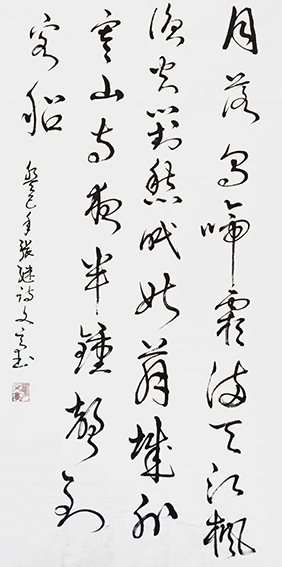 月落烏啼霜滿天江楓
漁火對愁眠姑蘇城外
寒山寺夜半鐘聲到
客船
癸巳年張継詩文書